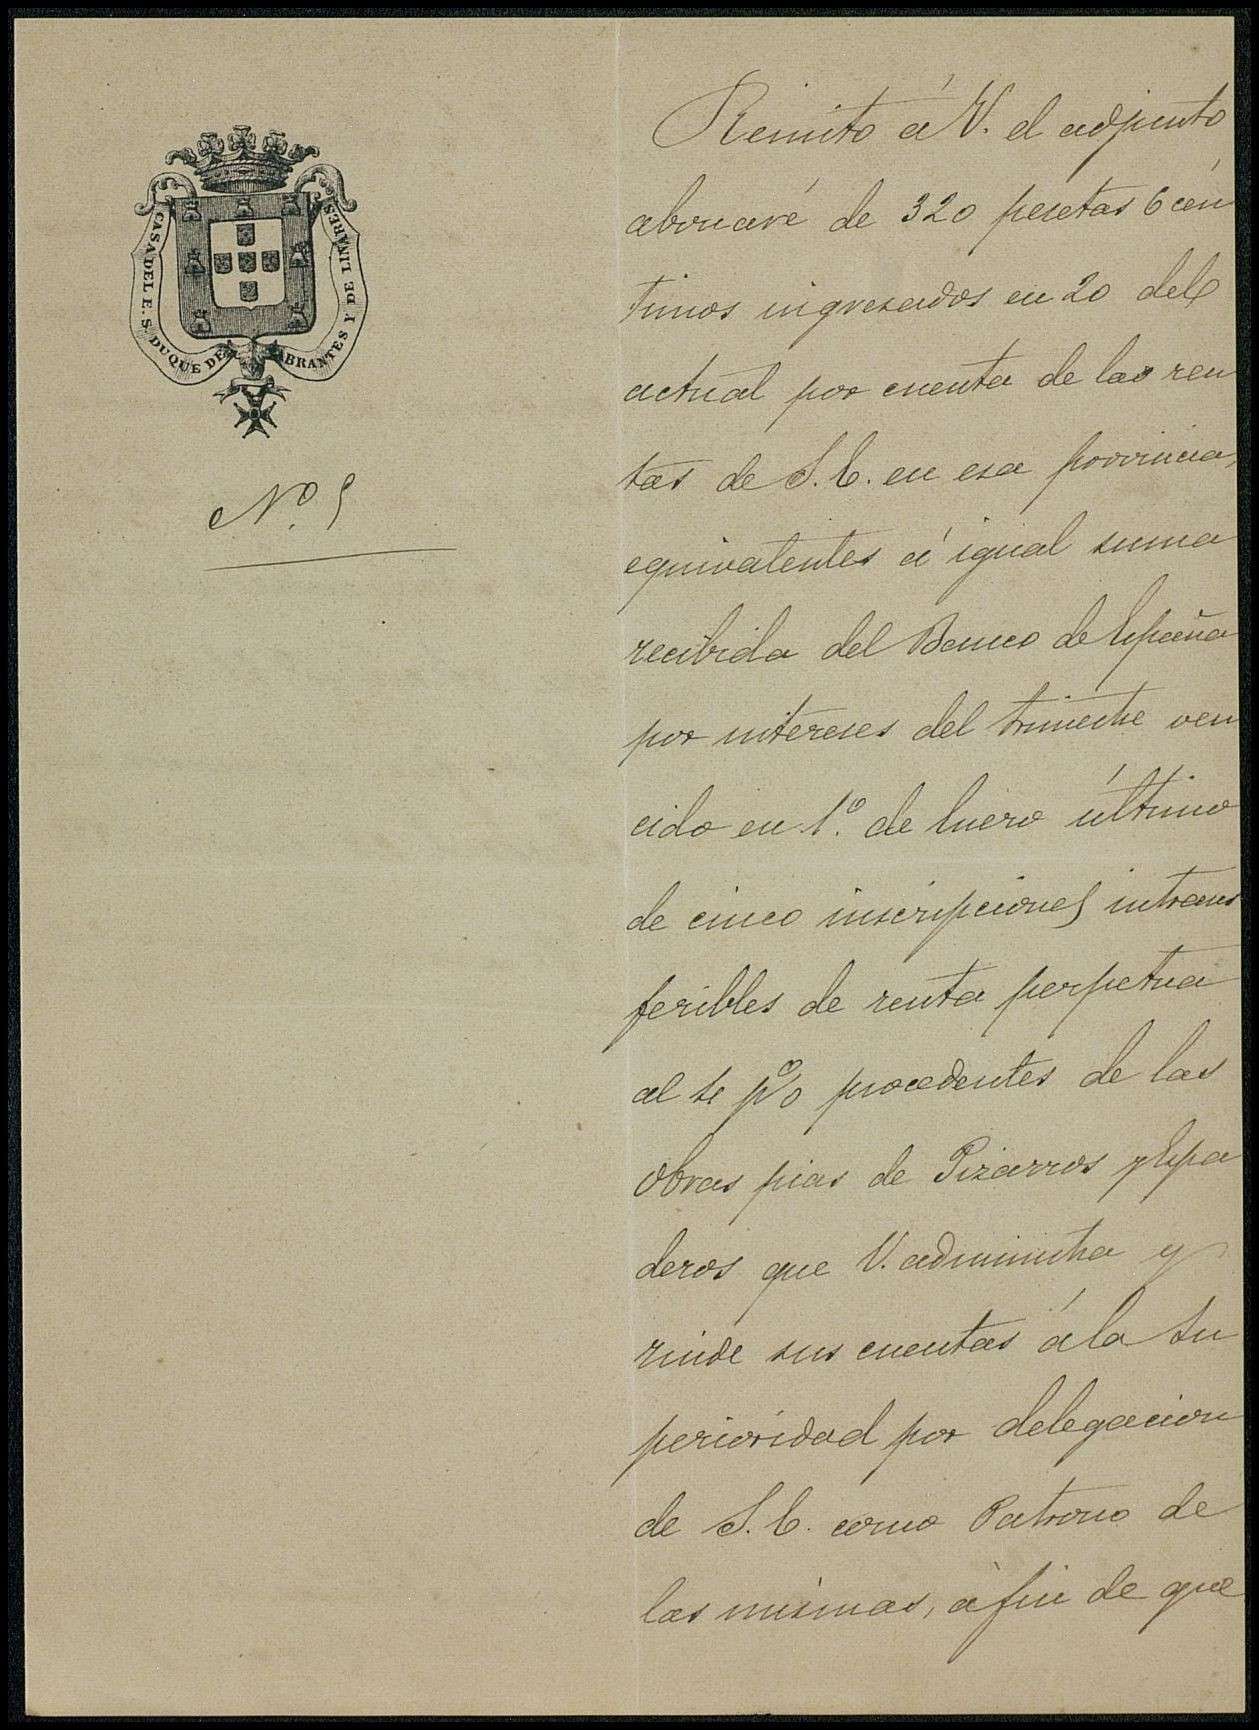 CASA DEL E. S. DUQUE DE ABRANTES Y DE LINARES
Nº. 5
Remito á V. el adjunto
abonaré de 320 pesetas 6 cén
timos ingresados en 20 del
actual por cuenta de las ren
tas de S. E. en esa provincia,
equivalentes á igual suma
recibida del Banco de España
por intereses del trimestre ven
cido en 1º. de Enero último
de cinco inscripciones intrans
feribles de renta perpetua
al 4 p% procedentes de las
obras pias de Pizarros y Espa
deros que V. administra y
rinde sus cuentas á la Su
perioridad por delegacion
de S. E. como Patrono de
las mismas, á fin de que